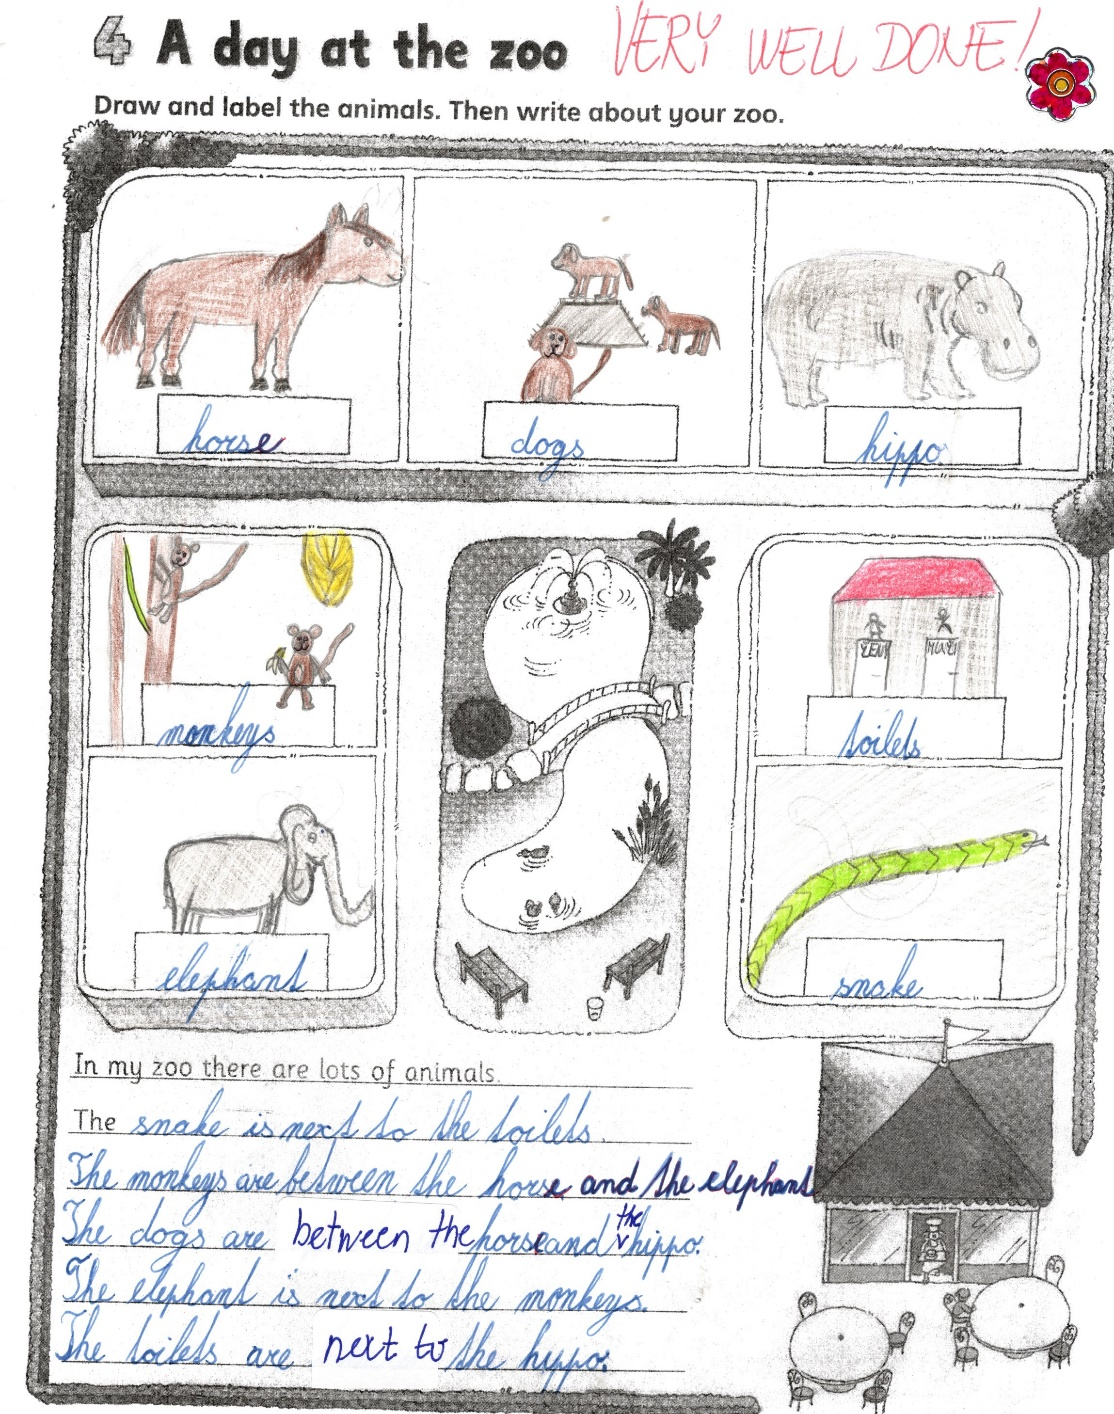 4 A day at the zoo VERY WELL DONE!
Draw and label the animals. Then write about your zoo.
horse dogs hippo
ŽENY MUŽI
monkeys toilets
elephant snake
In my zoo there are lots of animals.
The snake is next to the toilets.
The monkeys are between the horse and the elephant
The dogs are between the horse and the hippo.
The elephant is next to the monkeys.
The toilets are next to the hyppo.